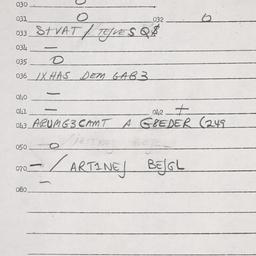 030
031 0 032 0
033 S+VAT / TC/VES Q$
034 —
035 0
036 IXHAS DEM GAB3
040 —
041 — 042 +
043 ARUMG3CAMT A GBEDER (249
050 0
070 — / ART1NE/ BE/GL
080 —